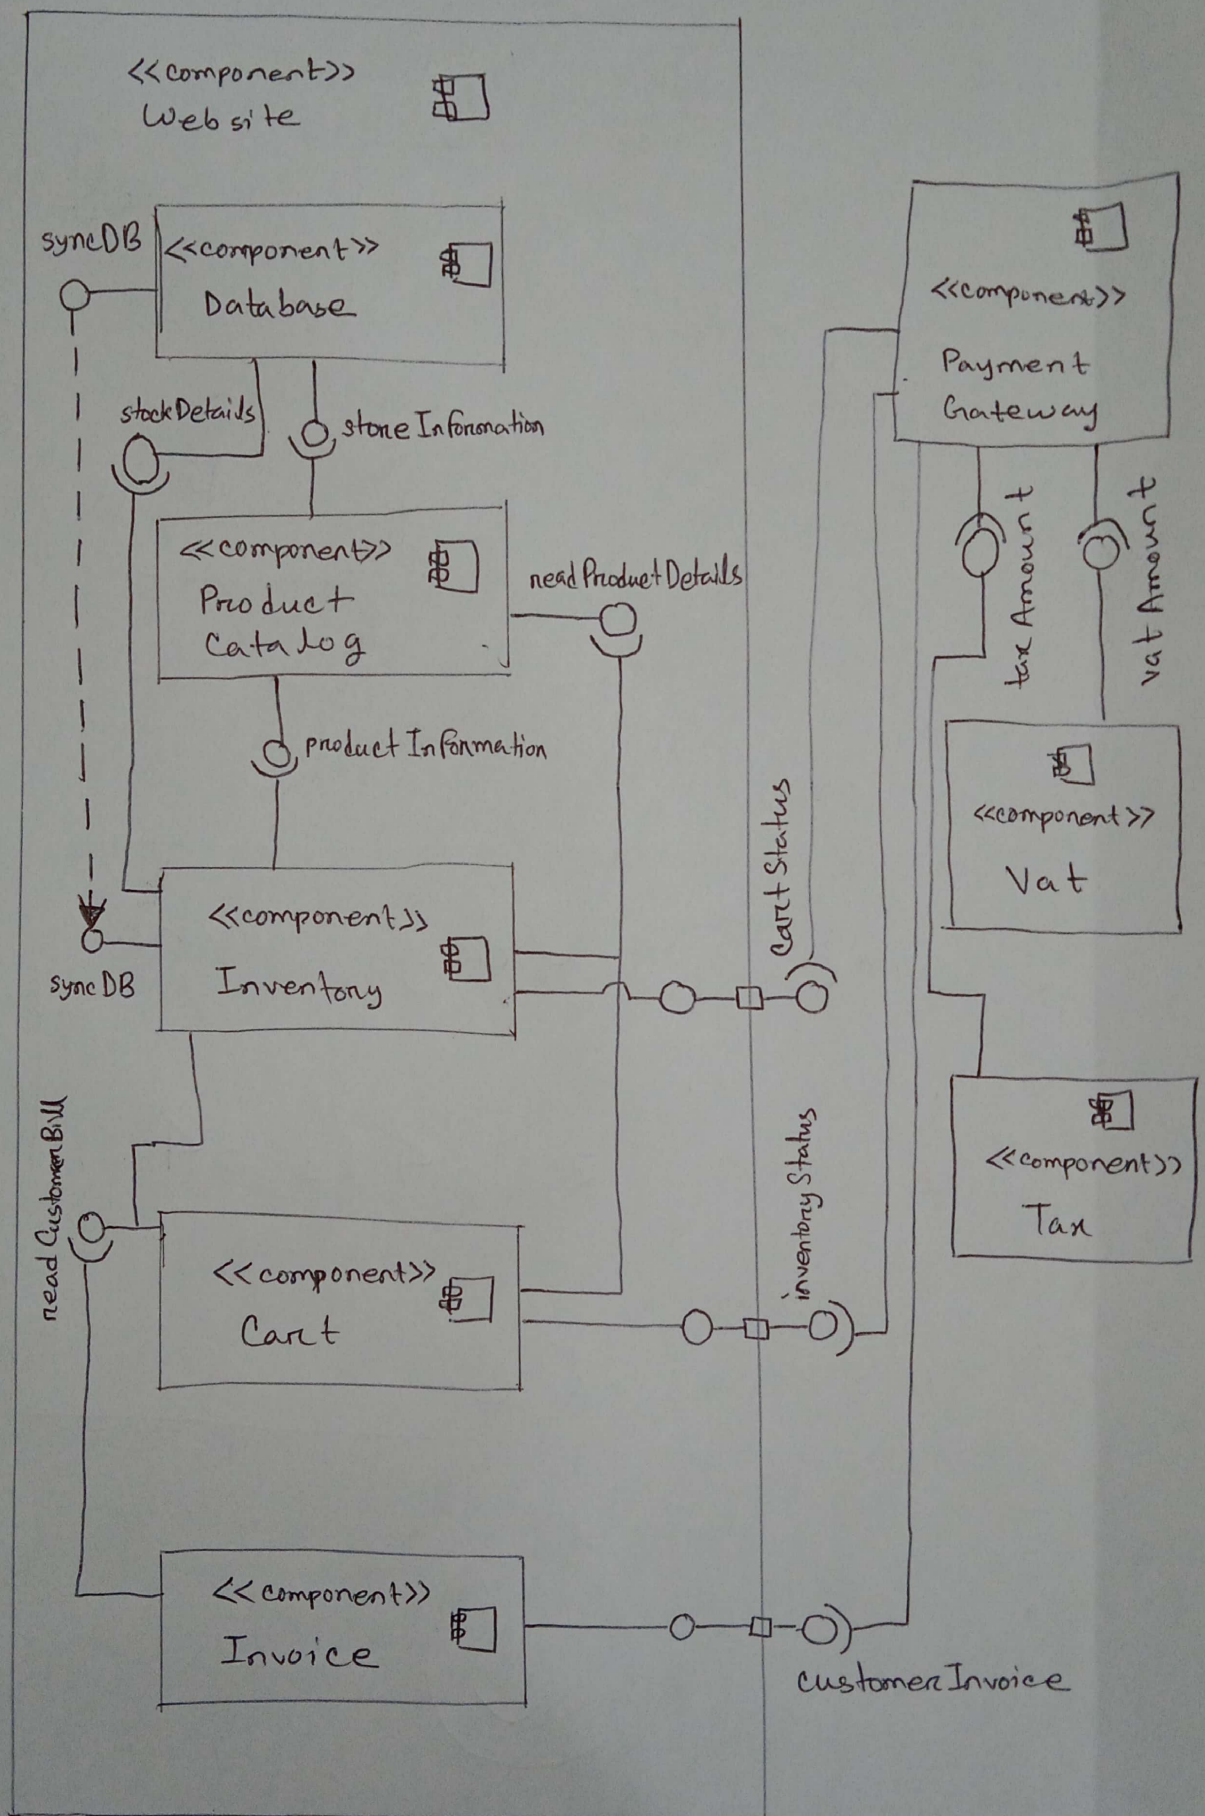 <<component>>
Website
syncDB
<<component>>
Database
stockDetails
storeInformation
<<component>>
Product
Catalog
readProductDetails
productInformation
<<component>>
Inventory
syncDB
readCustomerBill
<<component>>
Cart
<<component>>
Invoice
CartStatus
inventoryStatus
customerInvoice
<<component>>
Payment
Gateway
taxAmount
vatAmount
<<component>>
Vat
<<component>>
Tax